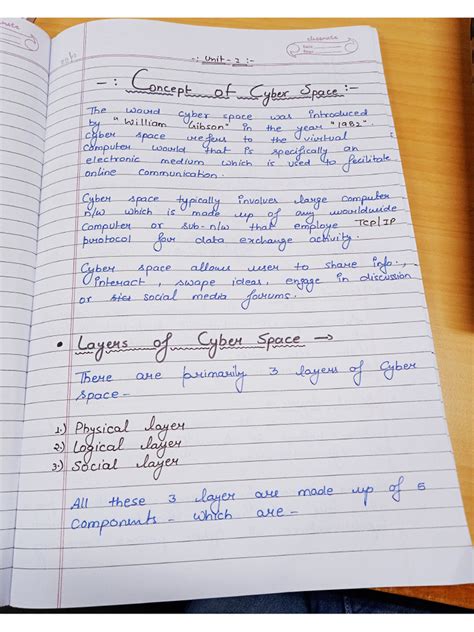 classmate
Date
Page
-: Unit - 2 :-
-: Concept of Cyber Space :-
The wourd cyber space was introduced
by "William Gibson" in the year "1982".
cyber space refers to the virtual
computer world that is specifically an
electronic medium which is used to facilitate
online communication.
Cyber space typically involves large computer
n/w which is made up of any worldwide
computer or sub-n/w that employe TCP/IP
protocol for data exchange activity.
Cyber space allows user to share info.,
interact, swape ideas, engage in discussion
or social media forums.
• Layers of Cyber Space →
There are primarily 3 layers of Cyber
Space -
1.) Physical layer
2.) Logical layer
3.) Social layer
All these 3 layer are made up of 5
components - which are -